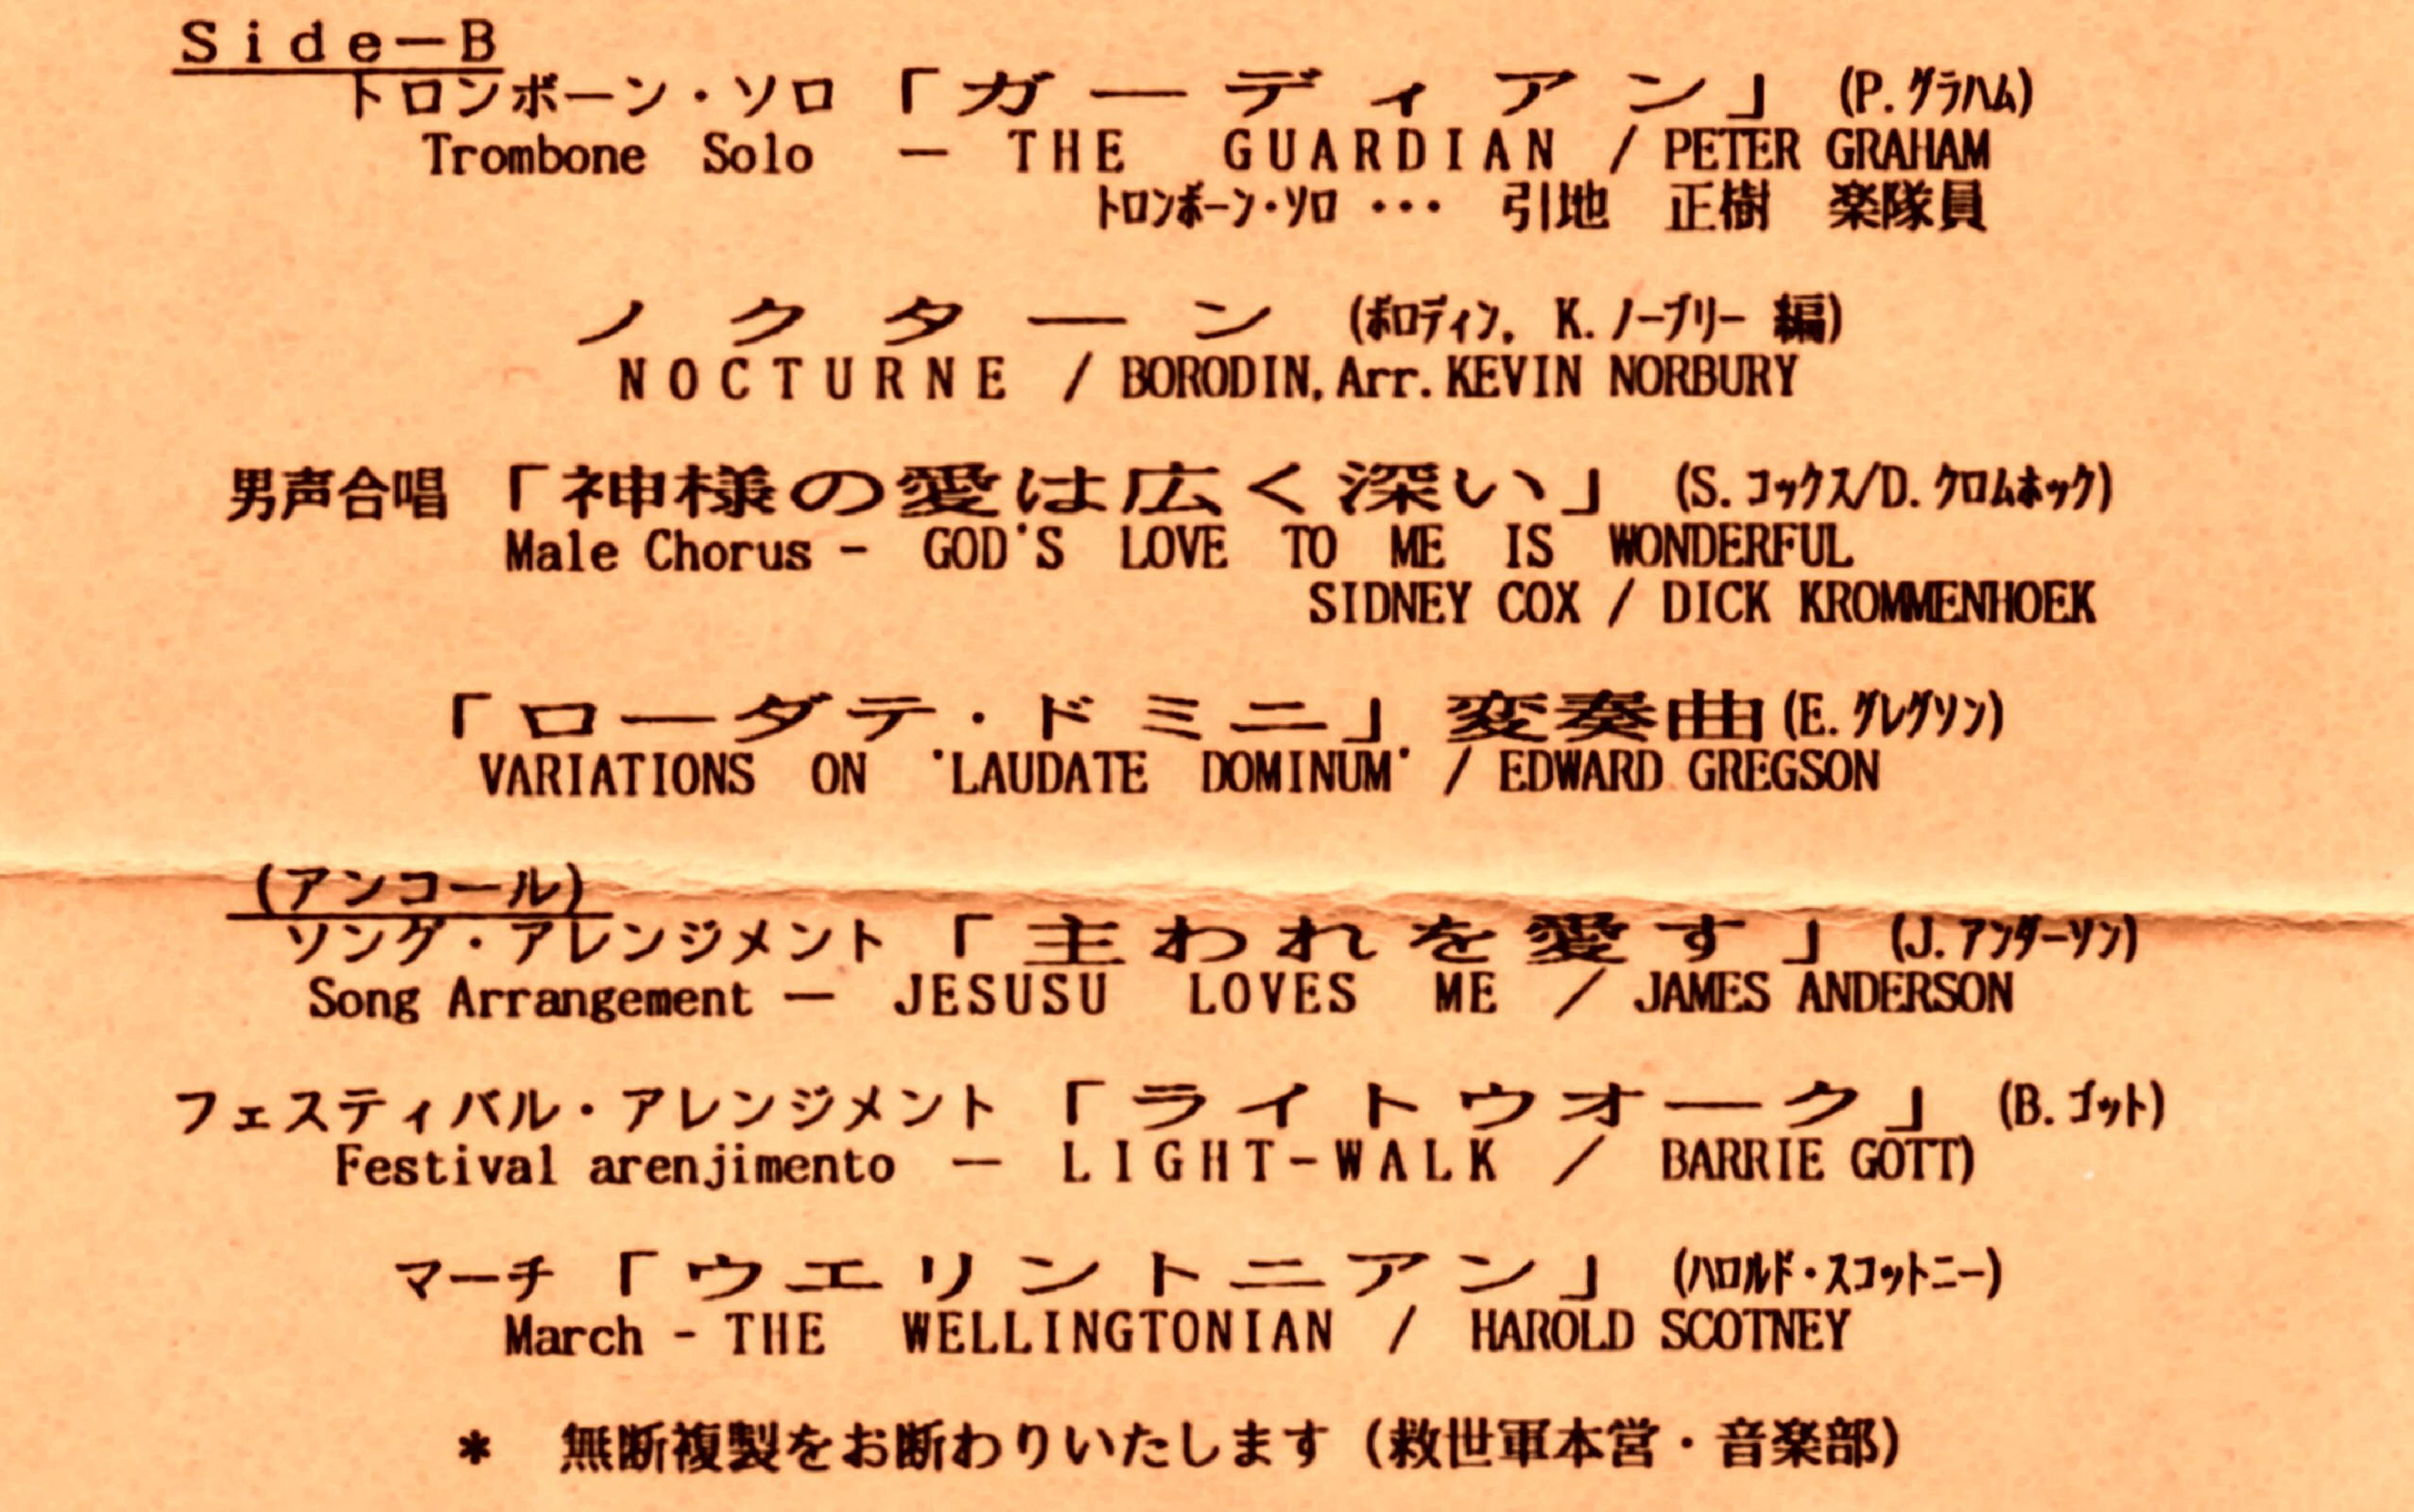 Side－B
トロンボーン・ソロ 「ガーディアン」 (P.グラハム)
Trombone Solo － THE GUARDIAN / PETER GRAHAM
トロンボーン・ソロ ・・・ 引地 正樹 楽隊員
ノクターン (ボロディン, K.ノーブリー 編)
NOCTURNE / BORODIN, Arr. KEVIN NORBURY
男声合唱 「神様の愛は広く深い」 (S.コックス/D.クロムホック)
Male Chorus - GOD'S LOVE TO ME IS WONDERFUL
SIDNEY COX / DICK KROMMENHOEK
「ローダテ・ドミニ」変奏曲 (E.グレグソン)
VARIATIONS ON 'LAUDATE DOMINUM' / EDWARD GREGSON
(アンコール)
ソング・アレンジメント 「主われを愛す」 (J.アンダーソン)
Song Arrangement － JESUSU LOVES ME / JAMES ANDERSON
フェスティバル・アレンジメント 「ライトウオーク」 (B.ゴット)
Festival arenjimento － LIGHT-WALK / BARRIE GOTT)
マーチ 「ウエリントニアン」 (ハロルド・スコットニー)
March - THE WELLINGTONIAN / HAROLD SCOTNEY
* 無断複製をお断わりいたします (救世軍本営・音楽部)